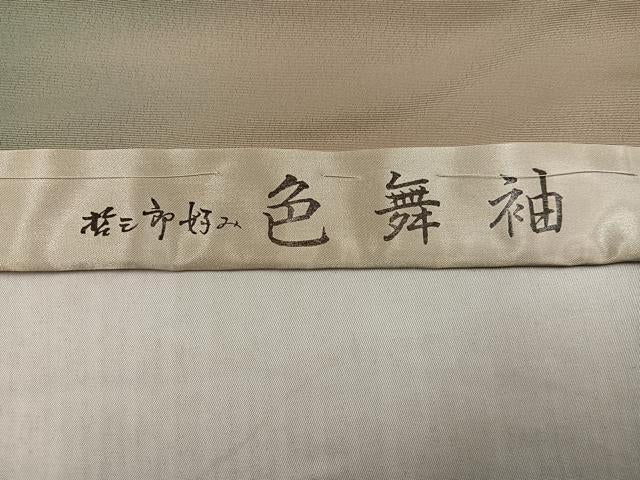 哲三郎好み 色舞袖